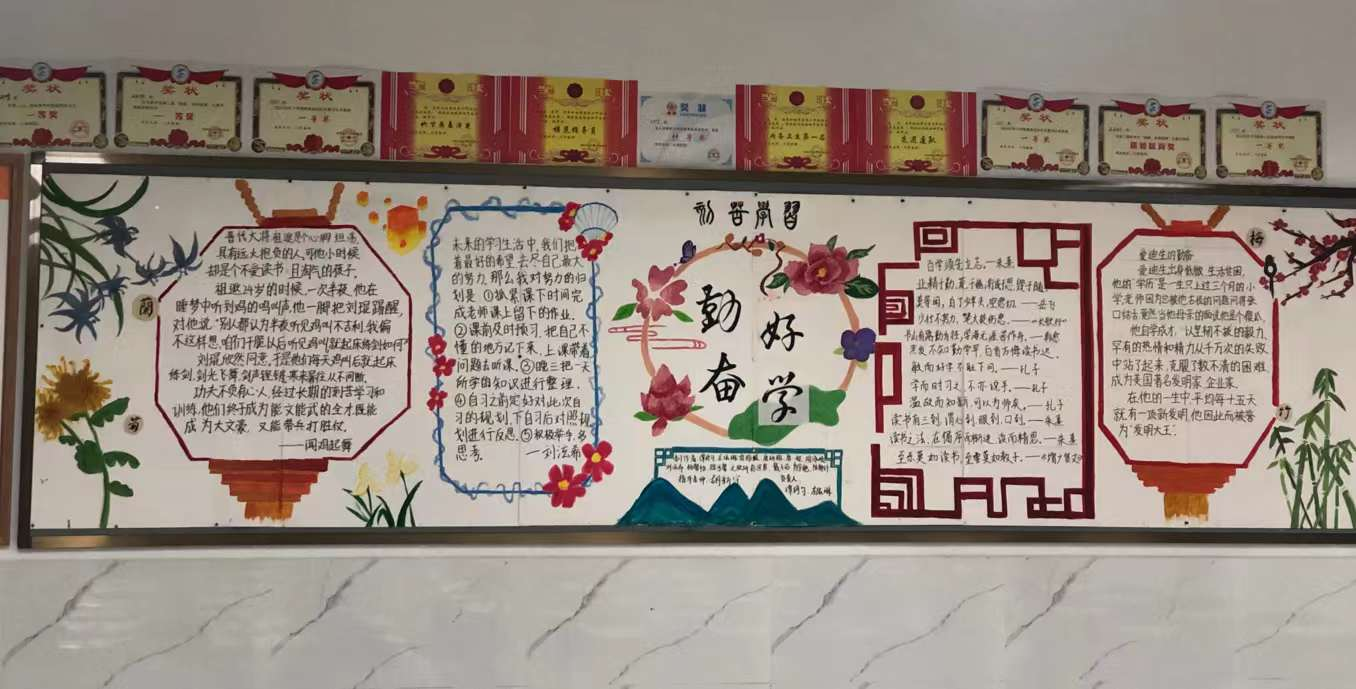 奖状
一等奖
奖状
一等奖
奖状
一等奖
模范服务员
奖状
奖状
一等奖
奖状
奖状
一等奖
勤奋学習
勤奋
好学
蘭
菊
梅
竹
晋代大将祖逖是个心胸坦荡,
具有远大抱负的人,可他小时候
却是个不爱读书,且淘气的孩子。
祖逖24岁的时候,一次半夜,他在
睡梦中听到鸡的鸣叫声,他一脚把刘琨踢醒,
对他说:"别人都认为半夜听见鸡叫不吉利,我偏
不这样想,咱们干脆以后听见鸡叫就起床练剑如何"
刘琨欣然同意,于是他们每天鸡叫后就起床
练剑,剑光飞舞,剑声铿锵,寒来暑往,从不间断。
功夫不负有心人,经过长期的刻苦学习和
训练,他们终于成为能文能武的全才,既能
成为大文豪,又能带兵打胜仗。
——闻鸡起舞
未来的学习生活中,我们把
着最好的希望,去尽自己最大
的努力,那么我对努力的归
划是:①抓紧课下时间完
成老师课上留下的作业,
②课前及时预习,把自己不
懂的地方记下来,上课带着
问题去听课,③晚三把一天
所学的知识进行整理,
④自习之前定好对此次自
习的规划,下自习后对照规
划进行反思,⑤积极举手,多
思考。
百学须先立志。—朱熹
莫等闲,白了少年头,空悲切。——岳飞
少壮不努力,老大徒伤悲。——《长歌行》
书山有路勤为径,学海无涯苦作舟。——韩愈
黑发不知勤学早,白首方悔读书迟。
敏而好学,不耻下问。——孔子
学而时习之,不亦说乎。——孔子
温故而知新,可以为师矣。——孔子
读书有三到,谓心到,眼到,口到。——朱熹
读书之法,在循序而渐进,熟读而精思。——朱熹
至乐莫如读书,至要莫如教子。——《增广贤文》
爱迪生的勤奋
爱迪生出身低微,生活贫困,
他的"学历"是一生只上过三个月的小
学,老师因为总被他古怪的问题问得张
口结舌,竟然当他母亲的面说他是个傻瓜,
他自学成才,以坚韧不拔的毅力,
罕有的热情和精力从千万次的失败
中站了起来,克服了数不清的困难,
成为美国著名发明家、企业家。
在他的一生中,平均每十五天
就有一项新发明,他因此而被誉
为"发明大王"。